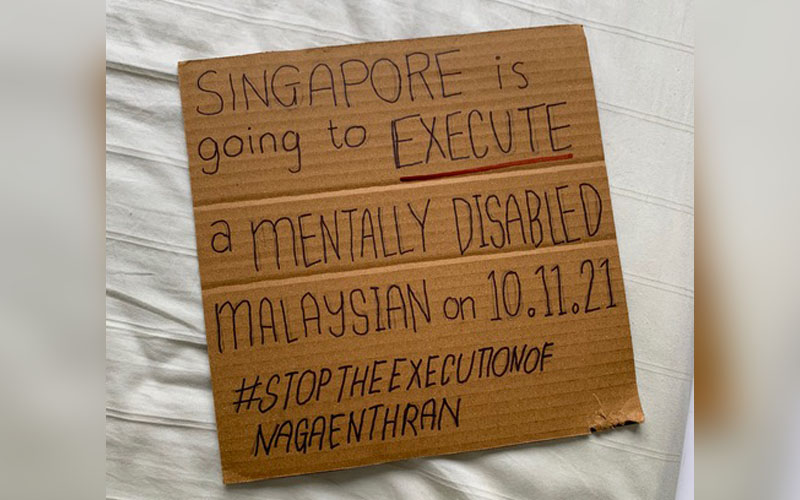 SINGAPORE is
going to EXECUTE
a MENTALLY DISABLED
MALAYSIAN on 10.11.21
#STOPTHEEXECUTIONOF
NAGAENTHRAN